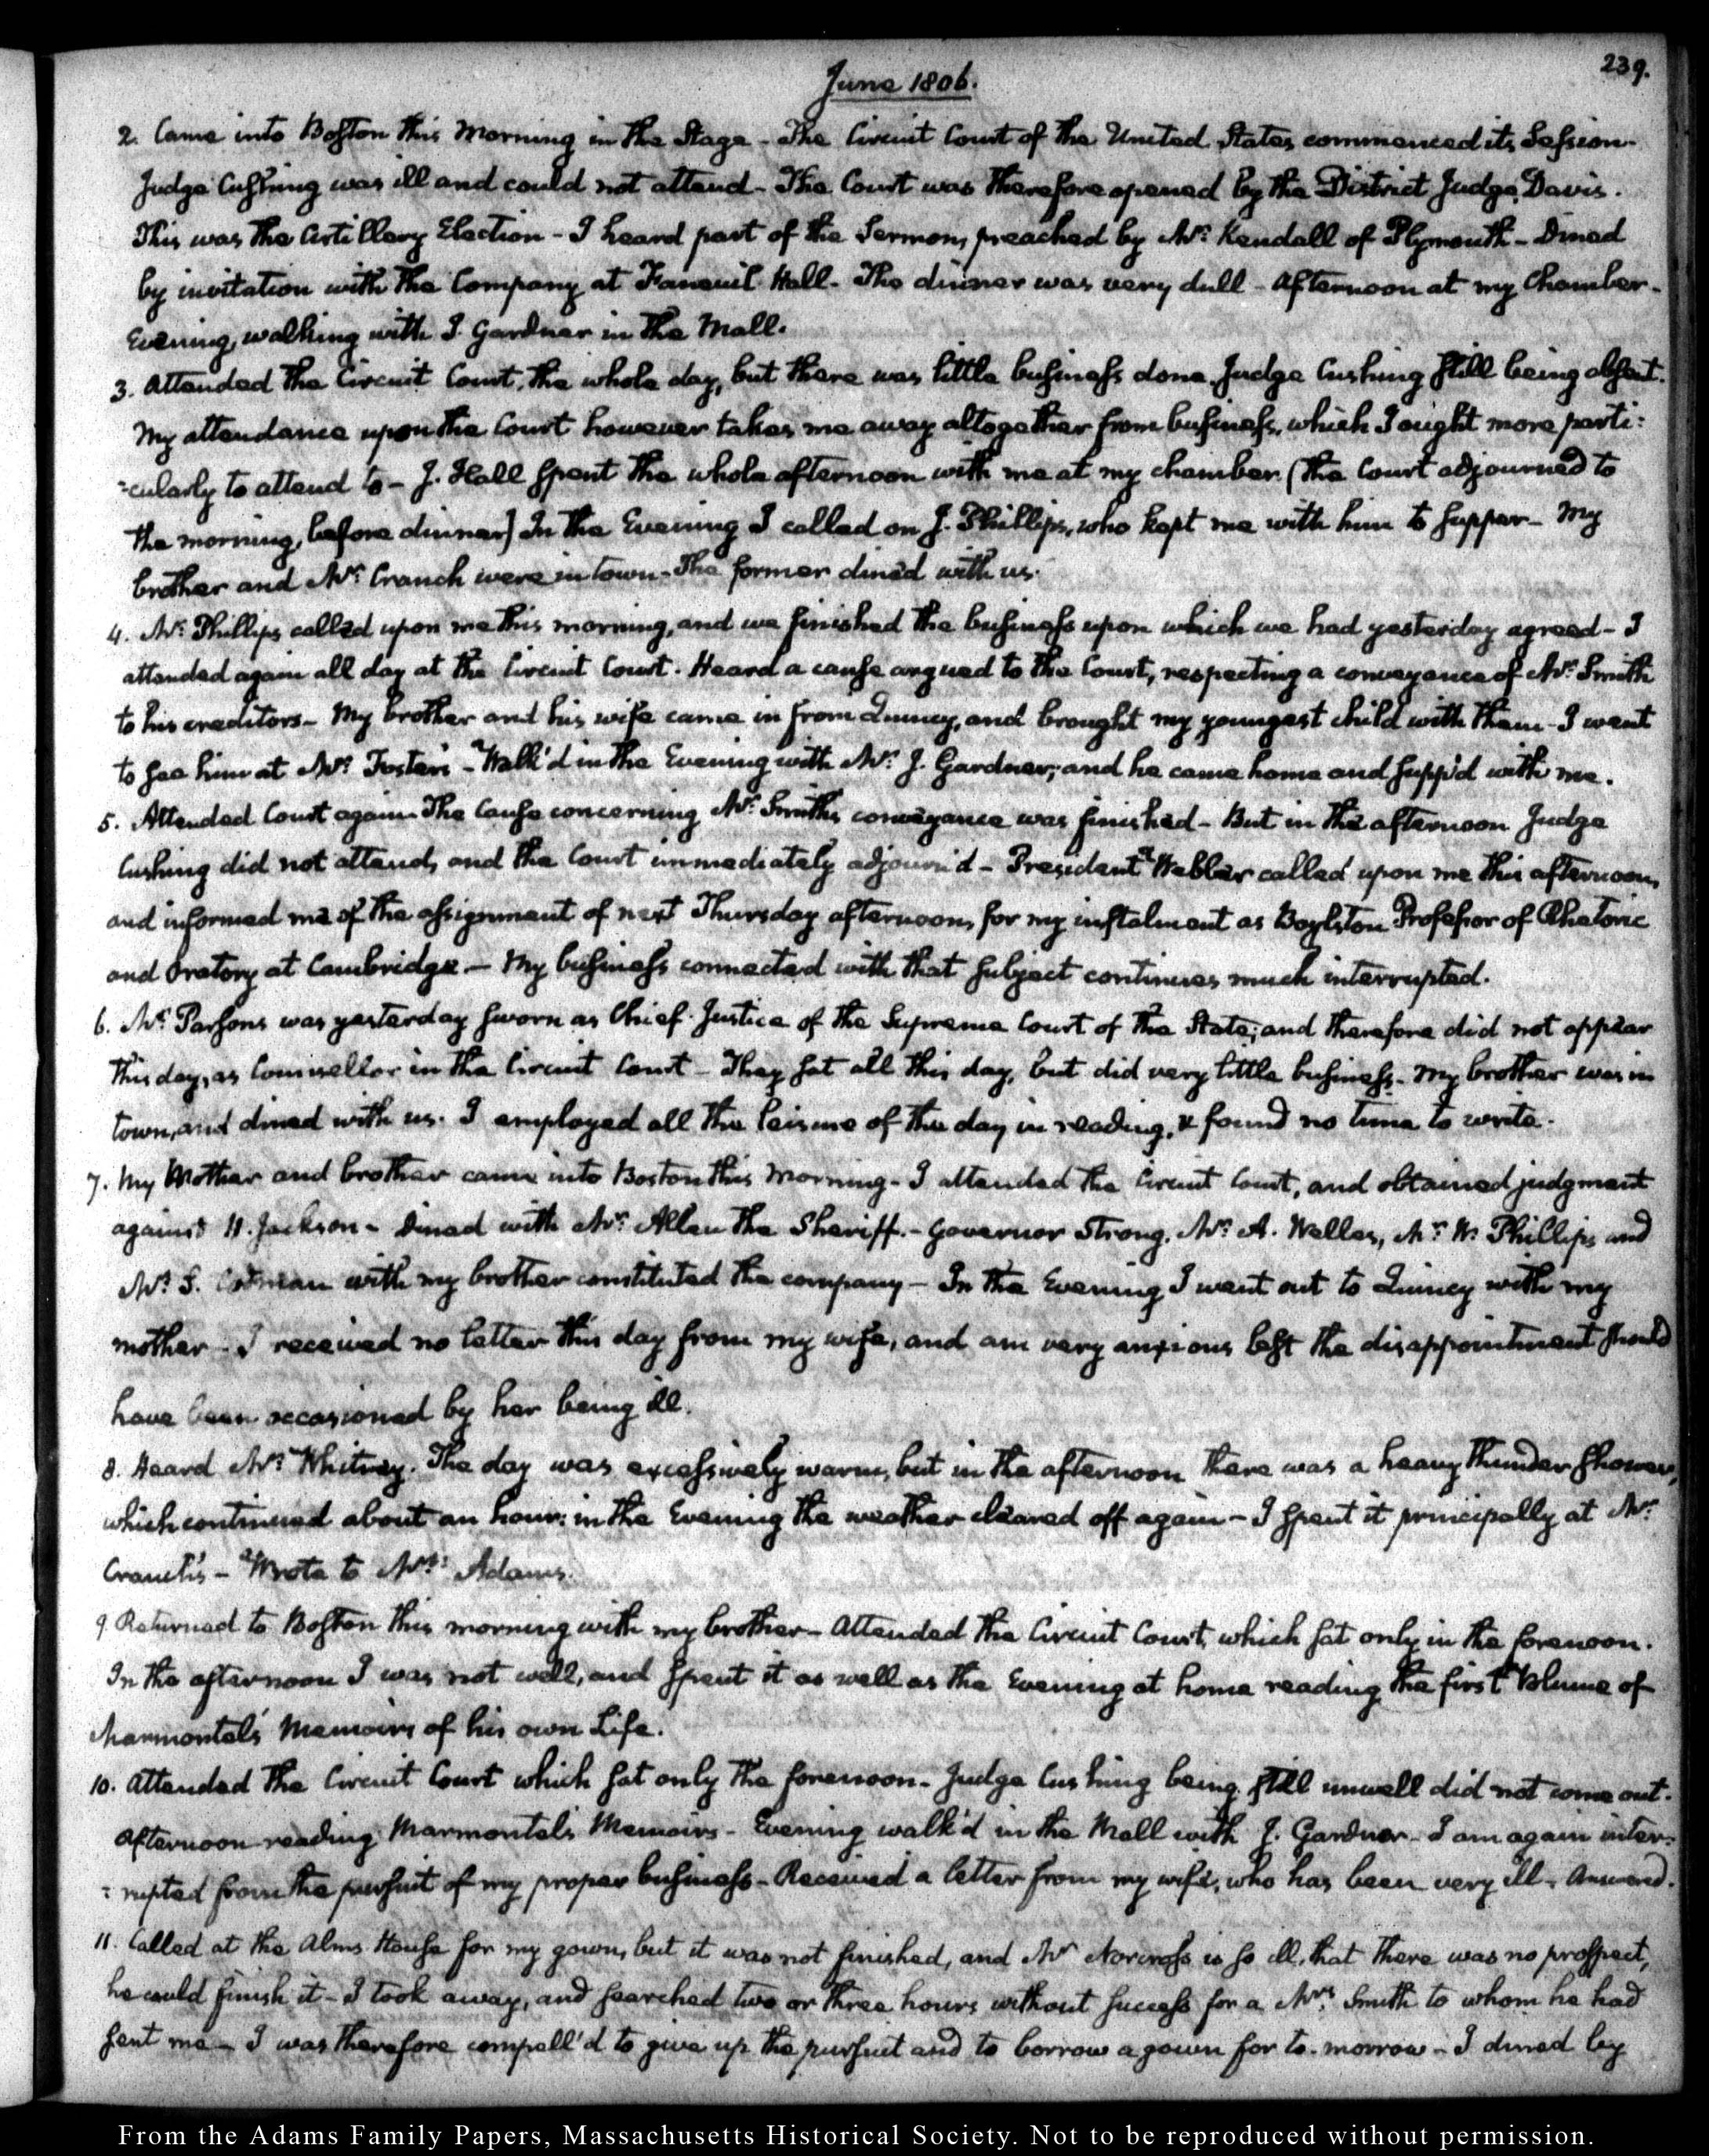 239.
June 1806.
2. Came into Boston this Morning in the Stage - The Circuit Court of the United States commenced its Session -
Judge Cushing was ill and could not attend - The Court was therefore opened by the District Judge, Davis.
This was the Artillery Election - I heard part of the Sermon, preached by Mr. Kendall of Plymouth - Dined
by invitation with the Company at Faneuil Hall - The dinner was very dull - Afternoon at my Chamber -
Evening, walking with J. Gardner in the Mall.
3. Attended the Circuit Court, the whole day, but there was little business done. Judge Cushing still being absent.
My attendance upon the Court however takes me away altogether from business, which I ought more parti:
:cularly to attend to - J. Hall spent the whole afternoon with me at my chamber (the Court adjourned to
the morning, before dinner) In the Evening I called on J. Phillips, who kept me with him to supper - My
brother and Mr. Cranch were in town - The former dined with us.
4. Mr. Phillips called upon me this morning, and we finished the business upon which we had yesterday agreed - I
attended again all day at the Circuit Court. Heard a cause argued to the Court, respecting a conveyance of Mr. Smith
to his creditors - My brother and his wife came in from Quincy, and brought my youngest child with them - I went
to see him at Mr. Foster's - Walk'd in the Evening with Mr. J. Gardner, and he came home and supp'd with me.
5. Attended Court again - The Cause concerning Mr. Smith's conveyance was finished - But in the afternoon Judge
Cushing did not attend, and the Court immediately adjourn'd - President Webber called upon me this afternoon,
and informed me of the assignment of next Thursday afternoon, for my instalment as Boylston Professor of Rhetoric
and Oratory at Cambridge. - My business connected with that subject continues much interrupted.
6. Mr. Parsons was yesterday sworn as Chief Justice of the Supreme Court of the State; and therefore did not appear
this day, as Counsellor in the Circuit Court - They sat all this day, but did very little business - My brother was in
town, and dined with us. I employed all the leisure of the day in reading, & found no time to write.
7. My Mother and brother came into Boston this Morning - I attended the Circuit Court, and obtained judgment
against H. Jackson - Dined with Mr. Allen the Sheriff. - Governor Strong, Mr. A. Welles, Mr. W. Phillips and
Mr. S. Codman with my brother constituted the company - In the Evening I went out to Quincy with my
mother - I received no letter this day from my wife, and am very anxious lest the disappointment should
have been occasioned by her being ill.
8. Heard Mr. Whitney. The day was excessively warm, but in the afternoon there was a heavy thunder shower,
which continued about an hour: in the Evening the weather cleared off again - I spent it principally at Mr.
Cranch's - Wrote to Mrs. Adams.
9. Returned to Boston this morning with my brother - Attended the Circuit Court, which sat only in the forenoon.
In the afternoon I was not well, and spent it as well as the Evening at home reading the first Volume of
Marmontel's Memoirs of his own Life.
10. Attended the Circuit Court which sat only the forenoon - Judge Cushing being still unwell did not come out.
Afternoon reading Marmontel's Memoirs - Evening walk'd in the Mall with J. Gardner - I am again inter:
:rupted from the pursuit of my proper business - Received a letter from my wife, who has been very ill - Answered.
11. Called at the Alms House for my gown, but it was not finished, and Mr Norcross is so ill, that there was no prospect,
he could finish it - I took away, and searched two or three hours without success for a Mrs. Smith to whom he had
sent me - I was therefore compell'd to give up the pursuit and to borrow a gown for to-morrow - I dined by
From the Adams Family Papers, Massachusetts Historical Society. Not to be reproduced without permission.